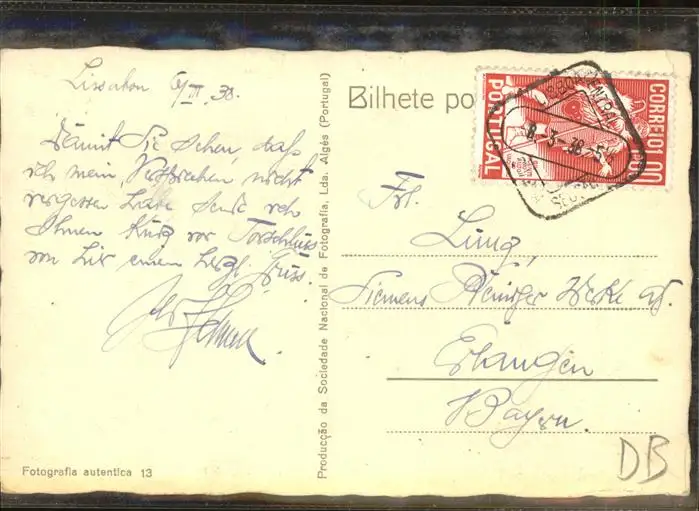 Lissabon 6/III.38.
Damit Sie sehen, dass
ich mein Versprechen nicht
vergessen habe sende ich
Ihnen kurz vor Torschluss
von hier einen herzl. Gruss.
Bilhete po
CORREIO 1.00
PORTUGAL
LISBOA CENTRAL
8.-3-38.-5
SEC.
Frl.
Lung,
Siemens Reiniger Werke AG.
Erlangen
Bayern.
DB
Producção da Sociedade Nacional de Fotografia, Lda. Algés (Portugal)
Fotografia autentica 13